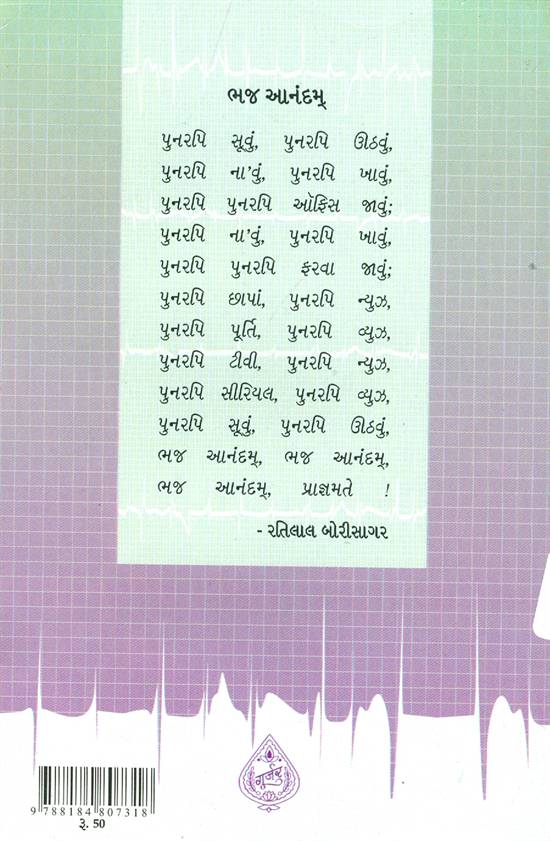 ભજ આનંદમ્
પુનરપિ સૂવું, પુનરપિ ઊઠવું,
પુનરપિ ના'વું, પુનરપિ ખાવું,
પુનરપિ પુનરપિ ઑફિસ જાવું;
પુનરપિ ના'વું, પુનરપિ ખાવું,
પુનરપિ પુનરપિ ફરવા જાવું;
પુનરપિ છાપાં, પુનરપિ ન્યુઝ,
પુનરપિ પૂર્તિ, પુનરપિ વ્યુઝ,
પુનરપિ ટીવી, પુનરપિ ન્યુઝ,
પુનરપિ સીરિયલ, પુનરપિ વ્યુઝ,
પુનરપિ સૂવું, પુનરપિ ઊઠવું,
ભજ આનંદમ્, ભજ આનંદમ્,
ભજ આનંદમ્, પ્રાજ્ઞમતે !
- રતિલાલ બોરીસાગર
ગૂર્જર
9788184807318
રૂ. 50